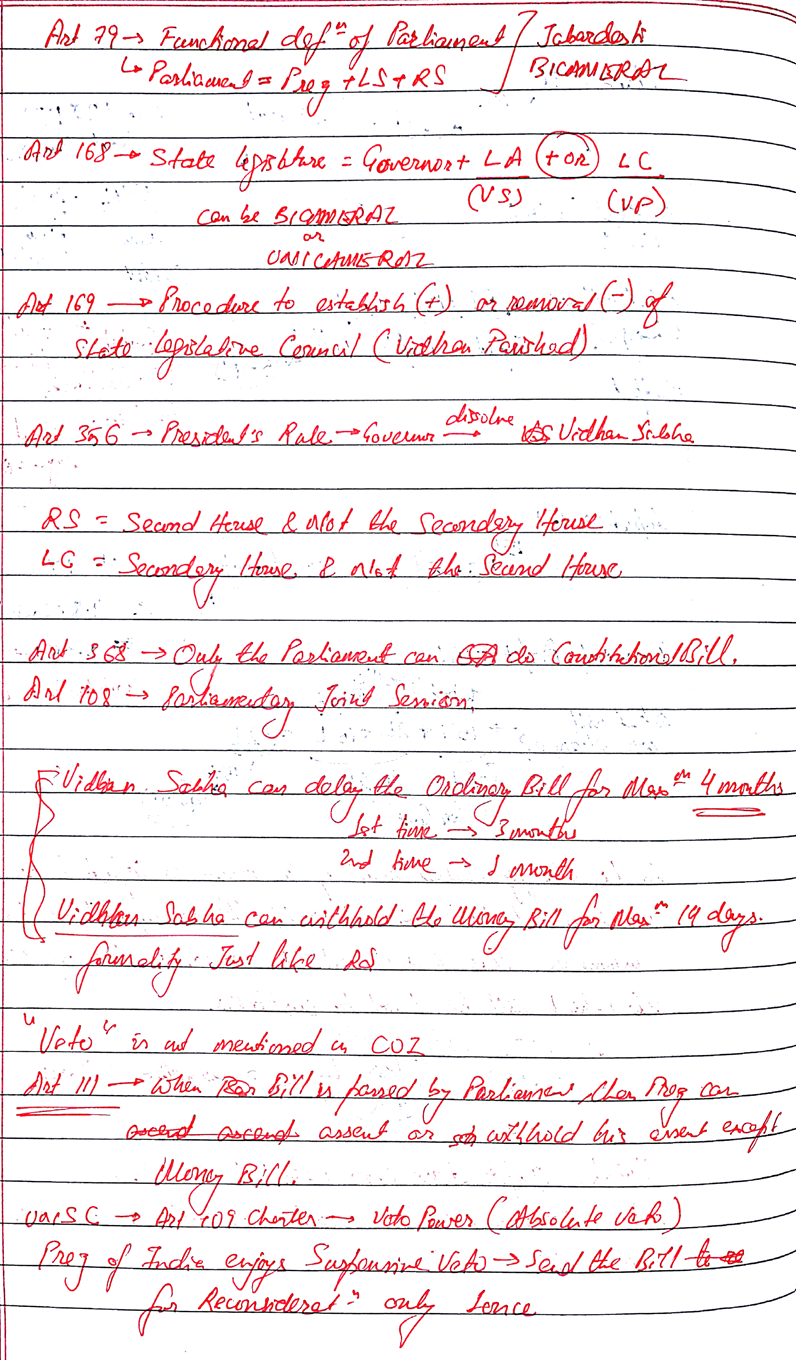 Art 79 → Functional defⁿ of Parliament
↳ Parliament = Prez + LS + RS
Jabardasti
BICAMERAL
Art 168 → State legislature = Governor + LA (+ or) LC
(VS) (VP)
can be BICAMERAL
or
UNICAMERAL
Art 169 → Procedure to establish (+) or removal (-) of
State Legislative Council (Vidhan Parishad).
Art 356 → President's Rule → Governor dissolve → Vidhan Sabha
RS = Second House & Not the Secondary House.
LC = Secondary House & Not the Second House
Art 368 → Only the Parliament can do Constitutional Bill.
Art 108 → Parliamentary Joint Session.
Vidhan Sabha can delay the Ordinary Bill for Maxᵐ 4 months
1st time → 3 months
2nd time → 1 month.
Vidhan Sabha can withhold the Money Bill for Maxᵐ 14 days.
formality. Just like RS
"Veto" is not mentioned in COI
Art 111 → When Bill is passed by Parliament, then Prez can
ascend ascend assent or withhold his assent except
Money Bill.
UNSC → Art 109 Charter → Veto Power (Absolute Veto)
Prez of India enjoys Suspensive Veto → Send the Bill
for Reconsideratⁿ only 1once